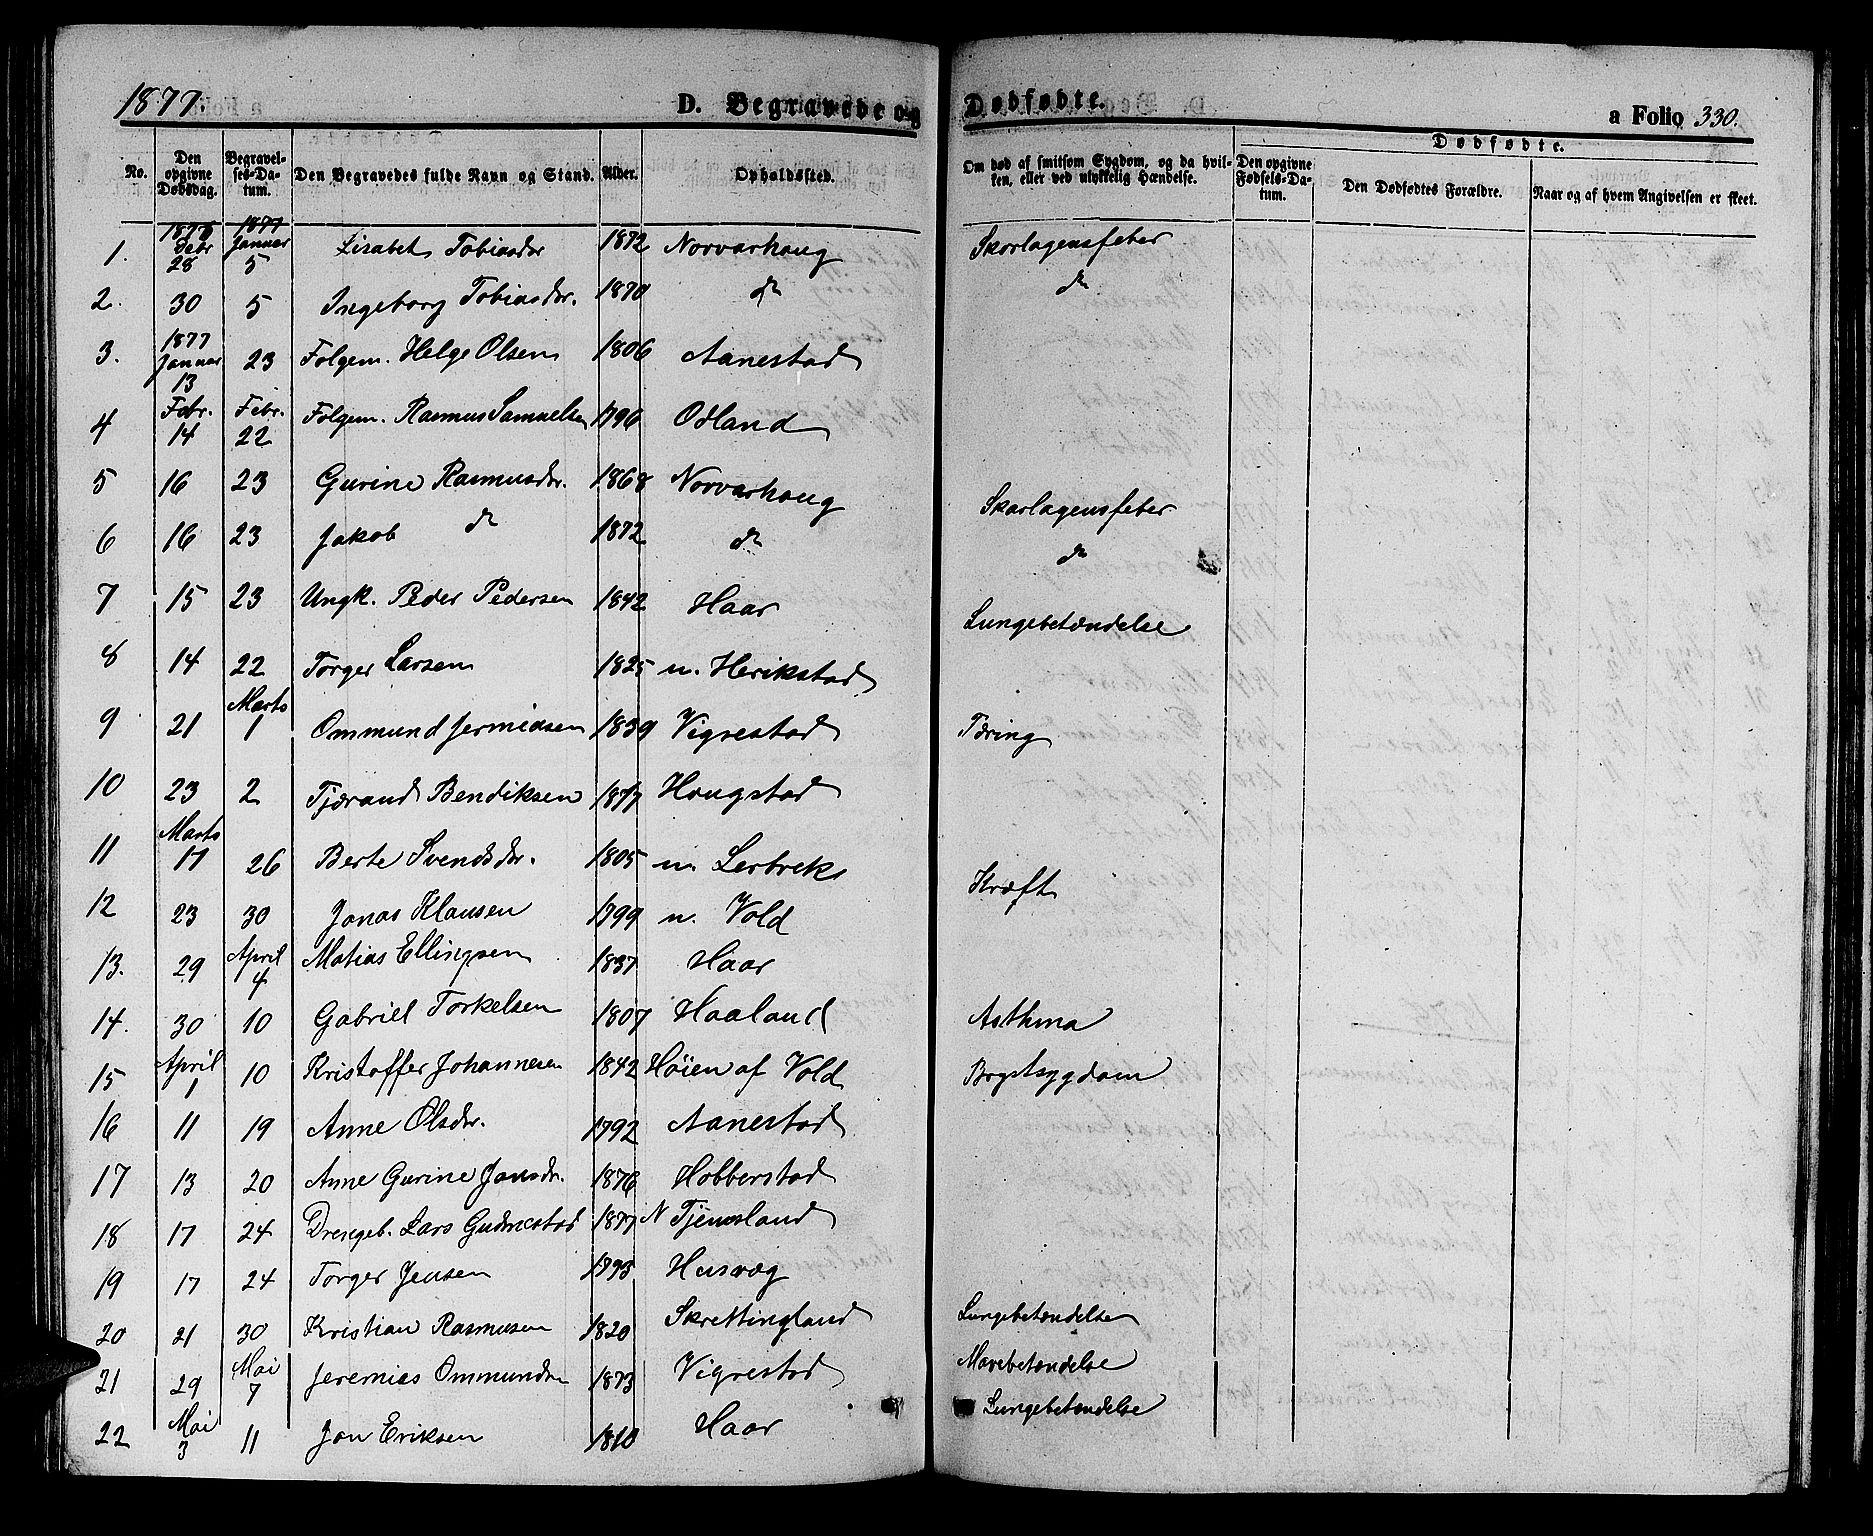 1877. D. Begravede og Dødfødte. a Folio 330.
No. Den opgivne Dødsdag. Begravelses-Datum. Den Begravedes fulde Navn og Stand. Alder. Opholdssted. Om død af smitsom Sygdom, og da hvilken, eller ved ulykkelig Hændelse. Dødfødte. Den opgivne Fødsels-Datum. Den Dødfødtes Forældre. Naar og af hvem Angivelsen er skeet.
1. 1876 28 1877 Januar 5 Lisabet Tobiasdr 1872 Norvarhaug Skarlagensfeber
2. 30 5 Ingeborg Tobiasdr. 1870 do do
3. 1877 Januar 13 23 Folgem. Helge Olsen 1806 Aanestad
4 Febr. 14 Febr. 22 Folgem. Rasmus Samuelsen 1796 Odland
5 16 23 Gurine Rasmusdr. 1868 Norvarhaug Skarlagensfeber
6 16 23 Jakob do 1872 do do
7 15 23 Ungk. Peder Pedersen 1842 Haar Lungebetændelse
8 14 22 Torger Larsen 1825 n. Herikstad
9 21 Marts 1 Ommund Jermiasen 1839 Vigrestad Tæring
10 23 2 Tjærand Bendiksen 1877 Haugstad
11 Marts 17 26 Berte Svendsdr. 1805 n. Lerbrek Kræft
12 23 30 Jonas Klausen 1799 n. Vold
13. 29 April 4 Matias Ellingsen 1837 Haar
14. 30 10 Gabriel Torkelsen 1807 Haaland Asthma
15 April 1 10 Kristoffer Johannesen 1842 Høien af Vold Brystsygdom
16 11 19 Anne Olsdr. 1792 Aanestad
17 13 20 Anne Gurine Jansdr. 1876 Hobberstad
18 17 24 Drengeb. Lars Gudmestad 1877 N Tjemsland
19 17 24 Torger Jensen 1795 Husvæg
20 21 30 Kristian Rasmusen 1820 Skrettingland Lungebetændelse
21 29 Mai 7 Jeremias Ommundsn 1873 Vigrestad Mavebetændelse
22 Mai 3 11 Jon Eriksen 1810 Haar Lungebetændelse